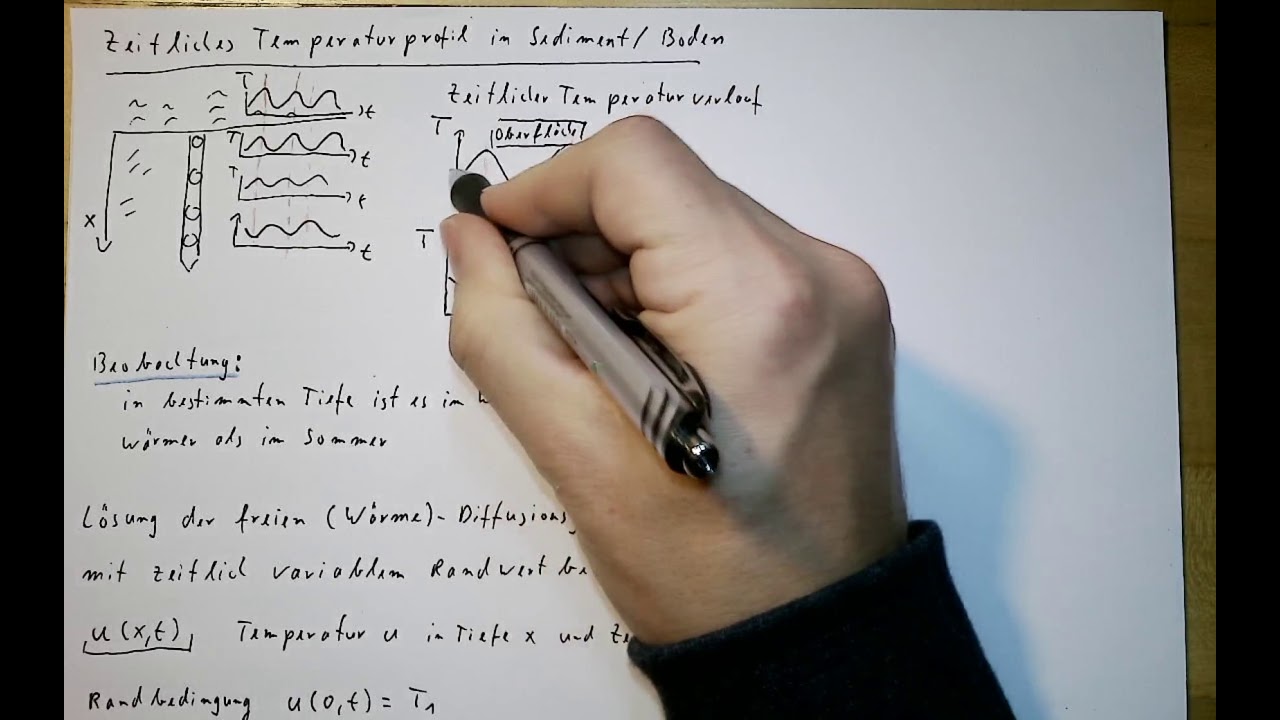 Zeitliches Temperaturprofil in Sediment/Boden
T
t
T
t
T
t
t
x
Zeitlicher Temperaturverlauf
T
Oberfläche
T
Beobachtung:
in bestimmten Tiefe ist es im
wärmer als im Sommer
Lösung der freien (Wärme)-Diffusions
mit zeitlich variablem Randwert
u(x,t) Temperatur u in Tiefe x und
Randbedingung u(0,t) = T₁